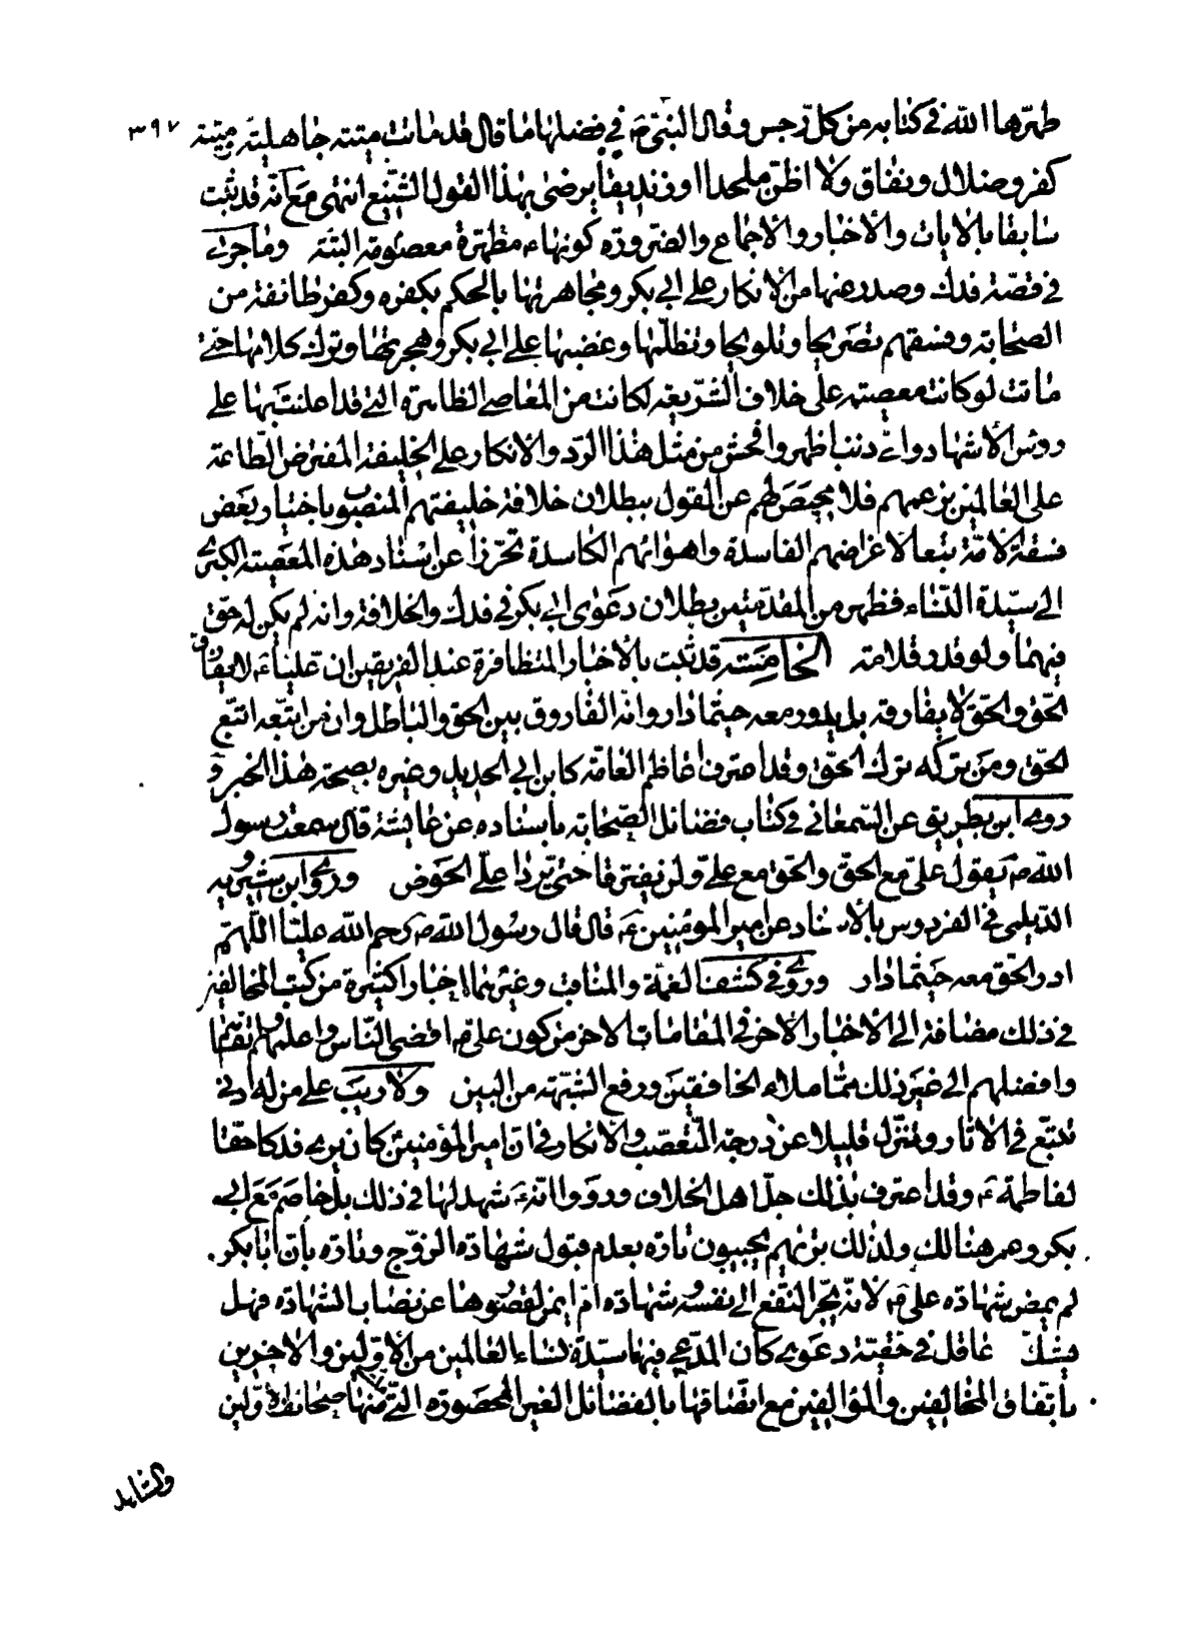 طهّرها الله في كتابه من كلّ رجس وقال النبيّ ص في فضلها ما قال قد ماتت ميتة جاهليّة ميتة ٣٩٧
كفر وضلال ونفاق ولا اظنّ ملحدا او زنديقا يرضى بهذا القول الشنيع انتهى مع انّه قد ثبت
سابقا بالايات والاخبار والاجماع والضرورة كونهاء مطهّرة معصومة البتّة وما جرى
في قصّة فدك وصدر عنها من الانكار على ابي بكر ومجاهرتها بالحكم بكفره وكفر طائفة من
الصحابة وفسقهم تصريحا وتلويحا وتظلّمها وغضبها على ابي بكر وهجرتها وترك كلامها حتى
ماتت لو كانت معصية على خلاف الشريعة لكانت من المعاصي الظاهرة التي قد اعلنت بها على
رؤس الاشهاد واى ذنب اظهر وافحش من مثل هذا الردّ والانكار على الخليفة المفترض الطاعة
على العالمين بزعمهم فلا محيص لهم عن القول ببطلان خلافة خليفتهم المنصوب باختيار بعض
فسقة الامّة تبعا لاغراضهم الفاسدة واهوائهم الكاسدة تحرّزا عن اسناد هذه المعصية الكبرى
الى سيّدة النساء فظهر من المقدّمتين بطلان دعوى ابي بكر في فدك والخلافة وانه لم يكن له حقّ
فيهما ولو قدر قلامة الخامسة قد ثبت بالاخبار المتظافرة عند الفريقين ان عليّاء لا يفارق
الحقّ والحقّ لا يفارقه بل يدور معه حيثما دار وانّه الفاروق بين الحق والباطل وان من اتبّعه اتبّع
الحقّ ومن تركه ترك الحقّ وقد اعترف اعاظم العامّة كابن ابي الحديد وغيره بصحة هذا الخبر و
روى ابن بطريق عن السمعاني في كتاب فضائل الصحابة باسناده عن عايشة قال سمعت رسول
الله ص يقول عليّ مع الحق والحق مع عليّ ولن يفترقا حتى يردا عليّ الحوض وروى ابن شيرويه
الديلمي في الفردوس بالاسناد عن امير المؤمنين ع قال قال رسول الله ص رحم الله عليّا اللّهمّ
ادر الحقّ معه حيثما دار وروى في كشف الغمّة والمناقب وغيرهما اخبارا كثيرة من كتب المخالفين
في ذلك مضافة الى الاخبار الاخر في المقامات الاخر من كون علي ع اقضى النّاس واعلمهم
وافضلهم الى غير ذلك ممّا ملاء الخافقين ورفع الشبهة من البين ولا ريب على من له ادنى
تتبّع في الاثار وتنزّل قليلا عن درجة التعصّب والانكار في ان امير المؤمنين كان يرى فدكا حقّا
لفاطمة ع وقد اعترف بذلك جلّ اهل الخلاف ورووا انّه ع شهد لها في ذلك بل خاصم مع ابي
بكر وعمر هنالك ولذلك تريهم يجيبون تارة بعدم قبول شهادة الزوج وتارة بأن ابا بكر
لم يمض شهادة علي ع لانّه يجرّ النفع الى نفسه وشهادة امّ ايمن لقصورها عن نصاب الشهادة فهل
يشكّ عاقل في حقيّة دعوى كان المدّعي فيها سيّدة نساء العالمين من الاوّلين والاخرين
باتّفاق المخالفين والمؤالفين مع اتّصافها بالفضائل الغير المحصورة التي منها
والشاهد